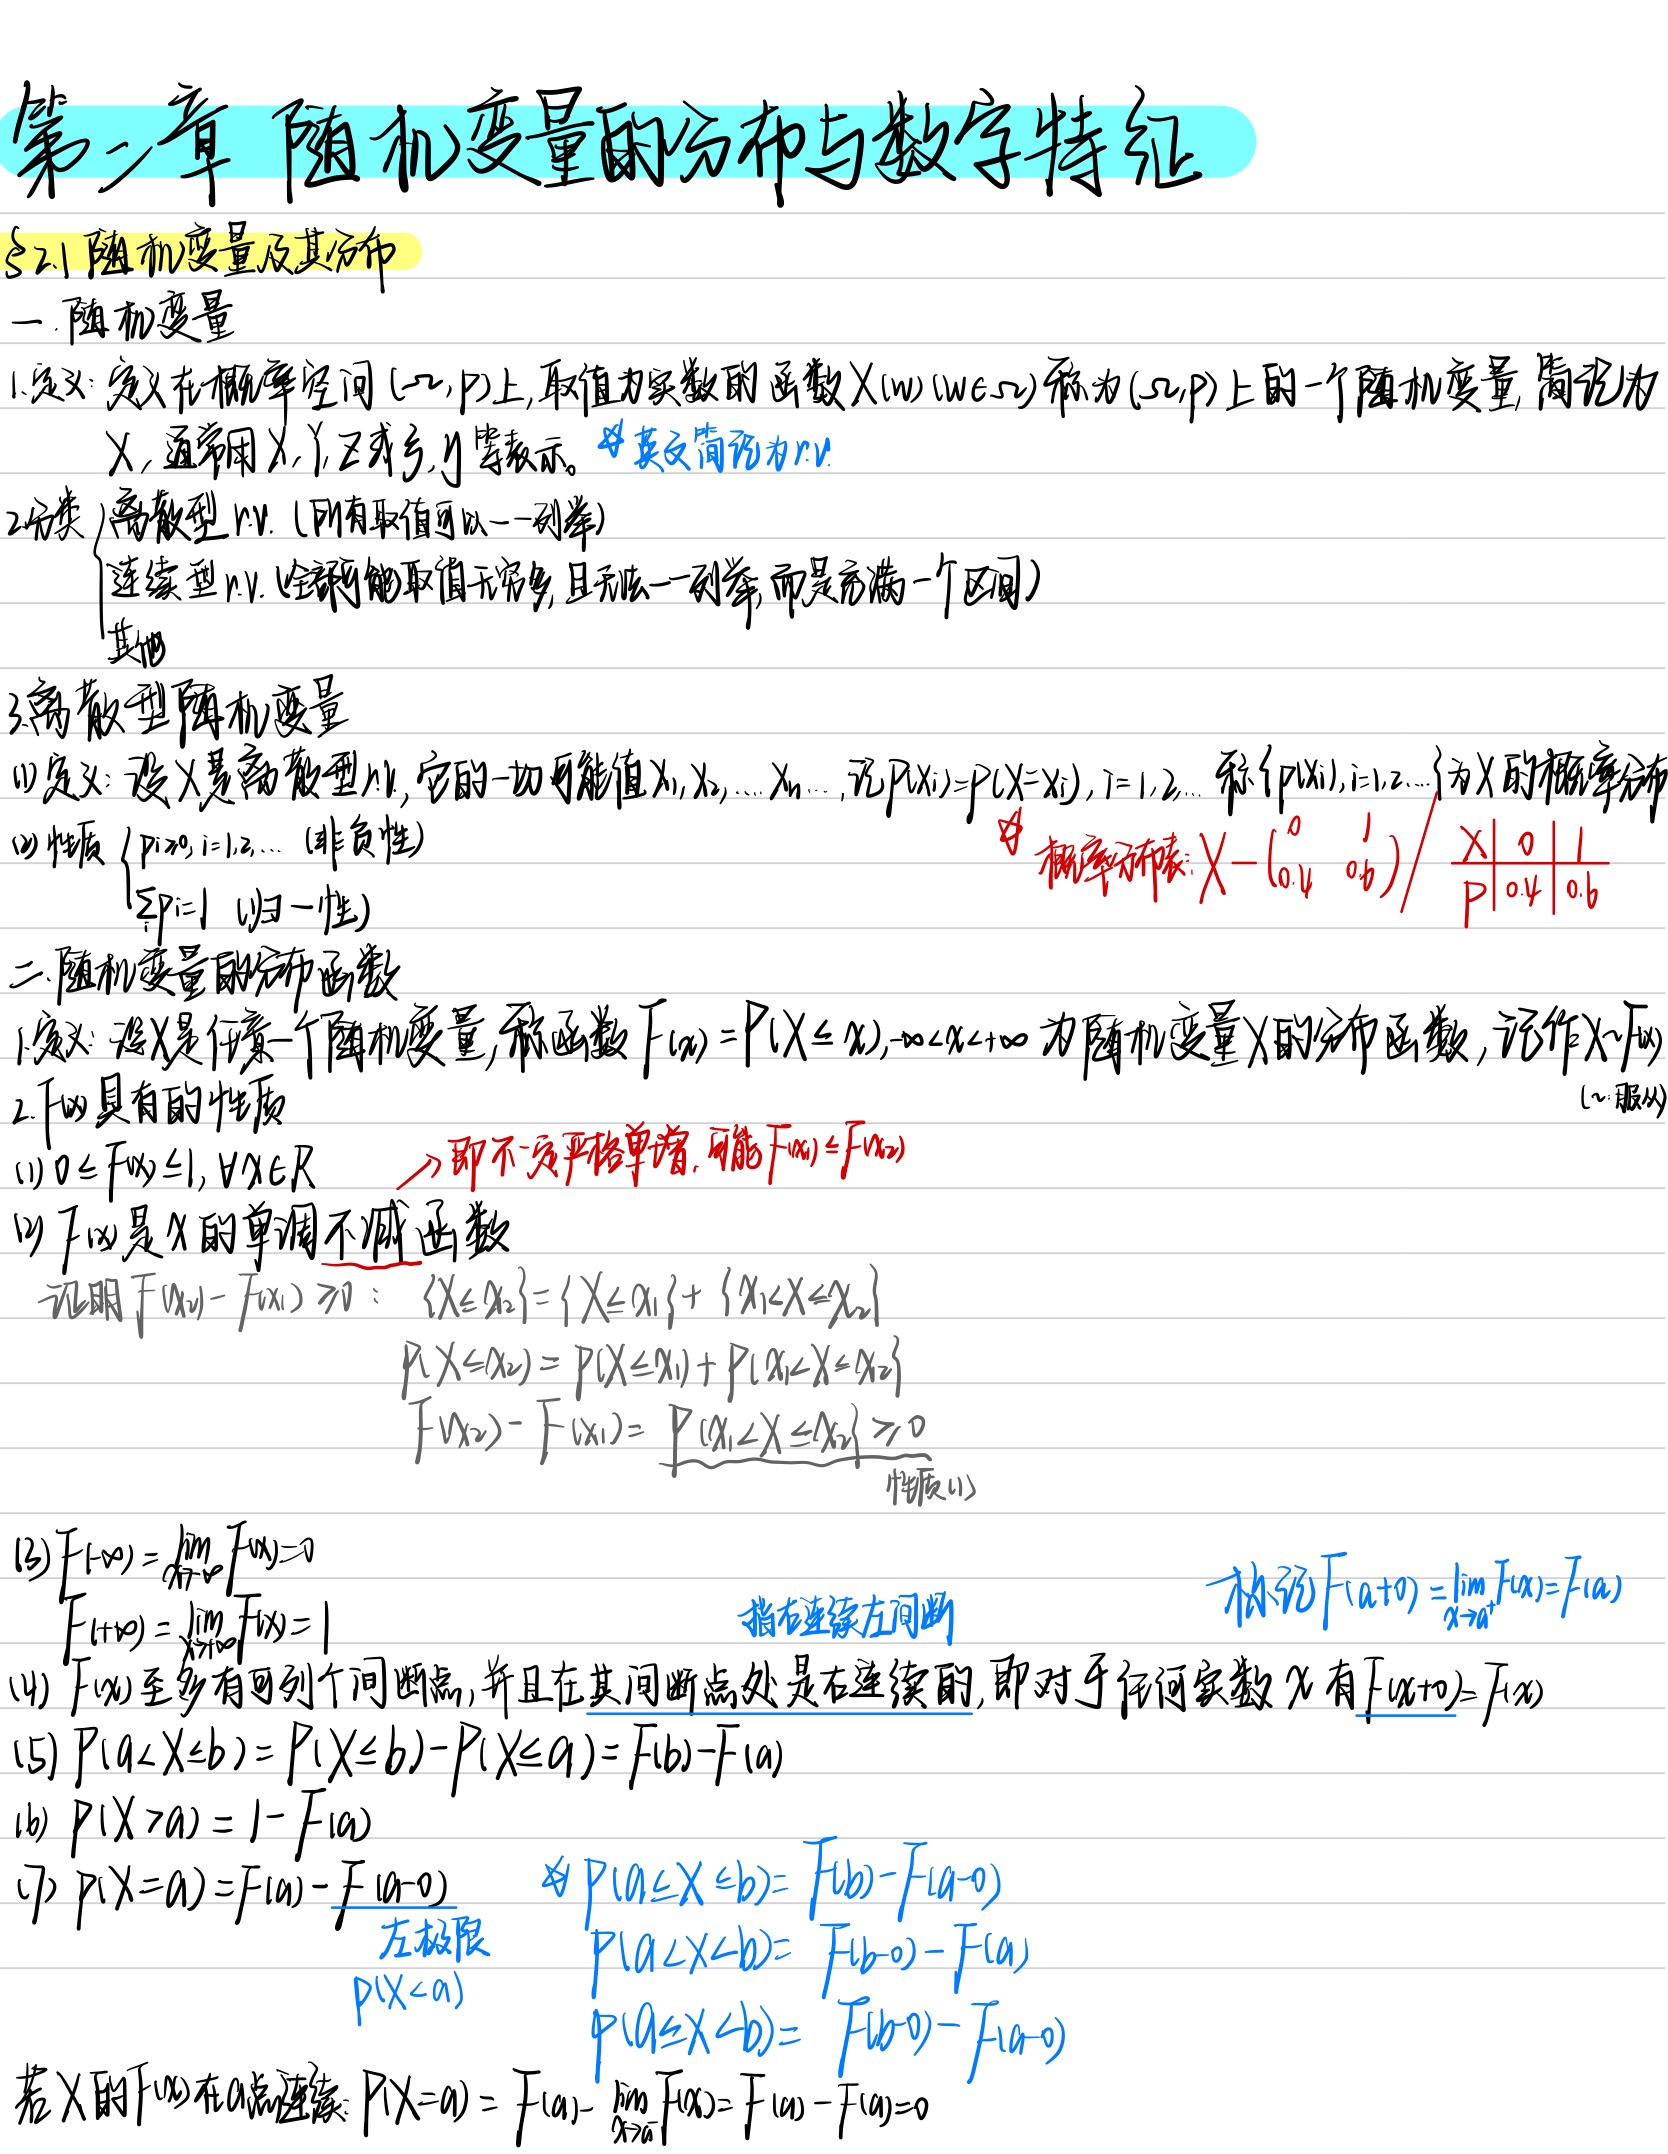 第二章 随机变量的分布与数字特征
§2.1 随机变量及其分布
一. 随机变量
1.定义: 定义在概率空间(Ω,P)上,取值为实数的函数X(w)(w∈Ω)称为(Ω,P)上的一个随机变量,简记为
X,通常用X,Y,Z或ξ,η等表示。 ☆英文简记为r.v.
2.分类 { 离散型r.v. (所有取值可以一一列举)
连续型r.v.(全部可能取值无穷多,且无法一一列举,而是充满一个区间)
其他
3.离散型随机变量
(1)定义: 设X是离散型r.v,它的一切可能值X₁,X₂,…Xn…,记P(Xi)=P(X=Xi),i=1,2,… 称{P(Xi),i=1,2…}为X的概率分布
(2)性质 { Pi≥0,i=1,2,… (非负性)
☆概率分布表: X-(0 1 0.4 0.6) / X|0|1 P|0.4|0.6
∑Pi=1 (归一性)
二.随机变量的分布函数
1.定义: 设X是任意一个随机变量,称函数F(x)=P(X≤x),-∞<x<+∞为随机变量X的分布函数,记作X~F(x)
(~:服从)
2.F(x)具有的性质
(1) 0≤F(x)≤1,∀x∈R → 即不一定严格单增,可能F(x₁)≤F(x₂)
(2) F(x)是x的单调不减函数
证明F(x₂)-F(x₁)≥0: {X≤x₂}={X≤x₁}+{x₁<X≤x₂}
P(X≤x₂)=P(X≤x₁)+P(x₁<X≤x₂}
F(x₂)-F(x₁)=P(x₁<X≤x₂}≥0
性质(1)
(3) F(-∞)=lim x→-∞ F(x)=0
标记F(a+0)=lim x→a⁺ F(x)=F(a)
F(+∞)=lim x→+∞ F(x)=1
指右连续左间断
(4) F(x)至多有可列个间断点,并且在其间断点处是右连续的,即对于任何实数x有F(x+0)=F(x)
(5) P(a<X≤b)=P(X≤b)-P(X≤a)=F(b)-F(a)
(6) P(X>a)=1-F(a)
(7) P(X=a)=F(a)-F(a-0) ☆P(a≤X≤b)=F(b)-F(a-0)
左极限 P(a<X<b)=F(b-0)-F(a)
P(X<a)
P(a≤X<b)=F(b-0)-F(a-0)
若X的F(x)在a点连续: P(X=a)=F(a)-lim x→a⁻ F(x)=F(a)-F(a)=0